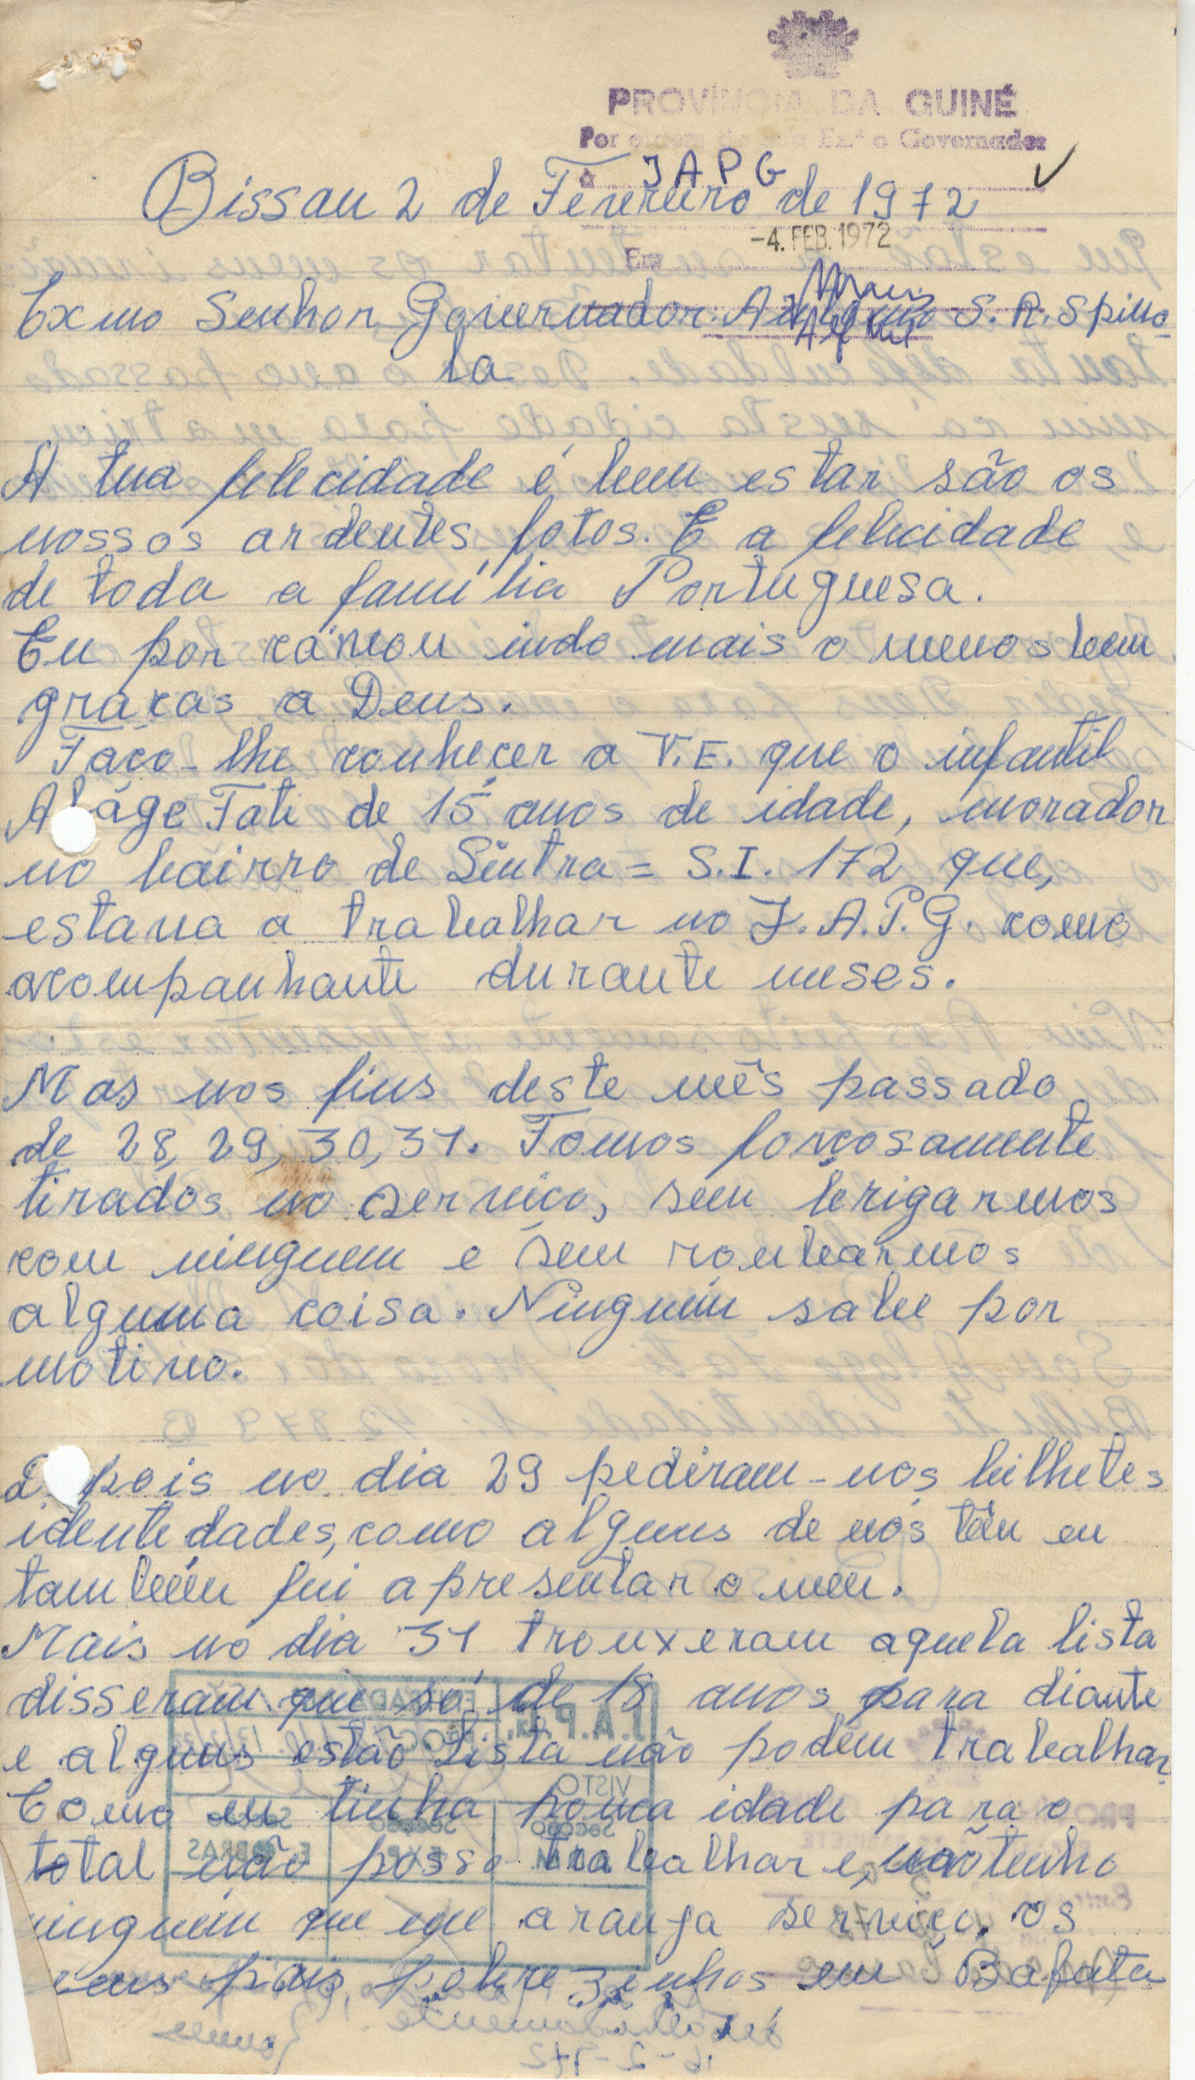 PROVÍNCIA DA GUINÉ
Por Ex.ª o Governador
J A P G
Bissau 2 de Fevereiro de 1972
-4. FEB. 1972
Em
Exmo Senhor Governador S. R. Spino
la
A tua felicidade é bem estar são os
nossos ardentes fotos. E a felicidade
de toda a família Portuguesa.
Eu por cá vou indo mais o menos bem
graças a Deus.
Faço-lhe conheçer a V.E. que o infantil
A láge Fati de 15 anos de idade, morador
no bairro de Sintra = S.I. 172 que,
estava a trabalhar no J.A.P.G. como
acompanhante durante meses.
Mas nos fins deste mês passado
de 28, 29, 30, 31. Fomos forçosamente
tirados no serviço, sem brigarmos
com ninguem e sem roubarmos
alguma coisa. Ninguém sabe por
motivo.
D pois no dia 29 pediram-nos bilhetes
identedades, como alguns de nós têm eu
também fui apresentar o meu.
Mais no dia 31 trouxeram aquela lista
disseram que só de 18 anos para diante
e alguns estão lista não podem trabalhar.
Como eu tinha pouca idade para o
total não posso trabalhar e, não tenho
ninguém que me aranja serviço. os
meus pais pobrezinhos em Bafata